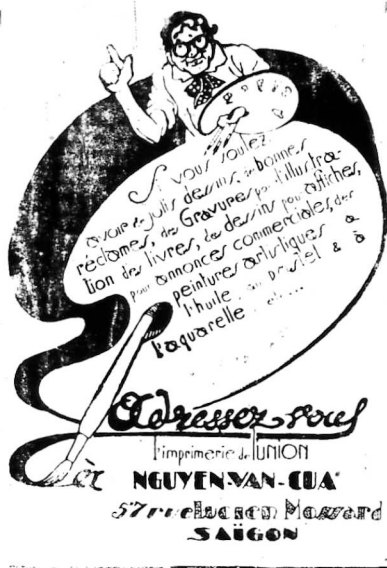 Si vous voulez
avoir de jolis dessins, de bonnes
réclames, des Gravures pour l'illustra-
tion des livres, des dessins pour affiches,
pour annonces commerciales, des
peintures artistiques à
l'huile, au pastel & à
l'aquarelle etc...
Adressez-vous
à l'imprimerie de l'UNION
NGUYEN-VAN-CUA
57 rue Lucien Mossard
SAÏGON